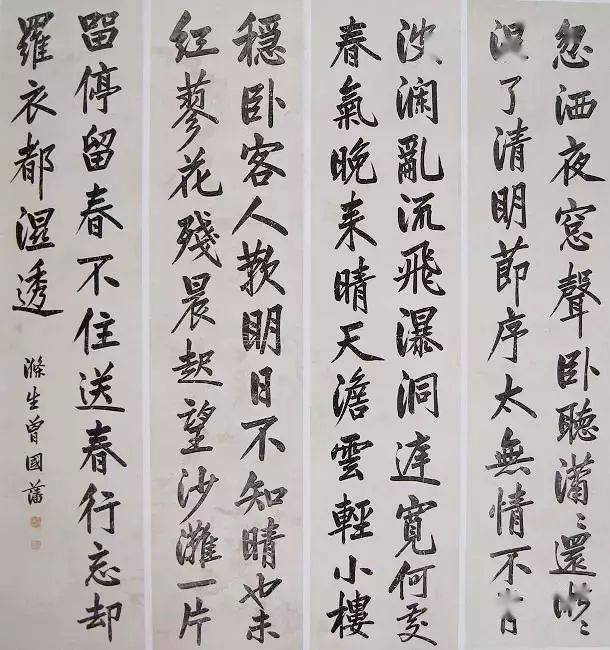 忽洒夜窓聲卧聽瀟〻還淅〻
了清明節序太無情不肯
波瀾亂流飛瀑洞庭寬何處
春氣晚来晴天澹雲輕小樓
穩卧客人歎明日不知晴也未
紅蓼花殘晨起望沙灘一片
畱停留春不住送春行忘却
羅衣都濕透
滌生曾國藩